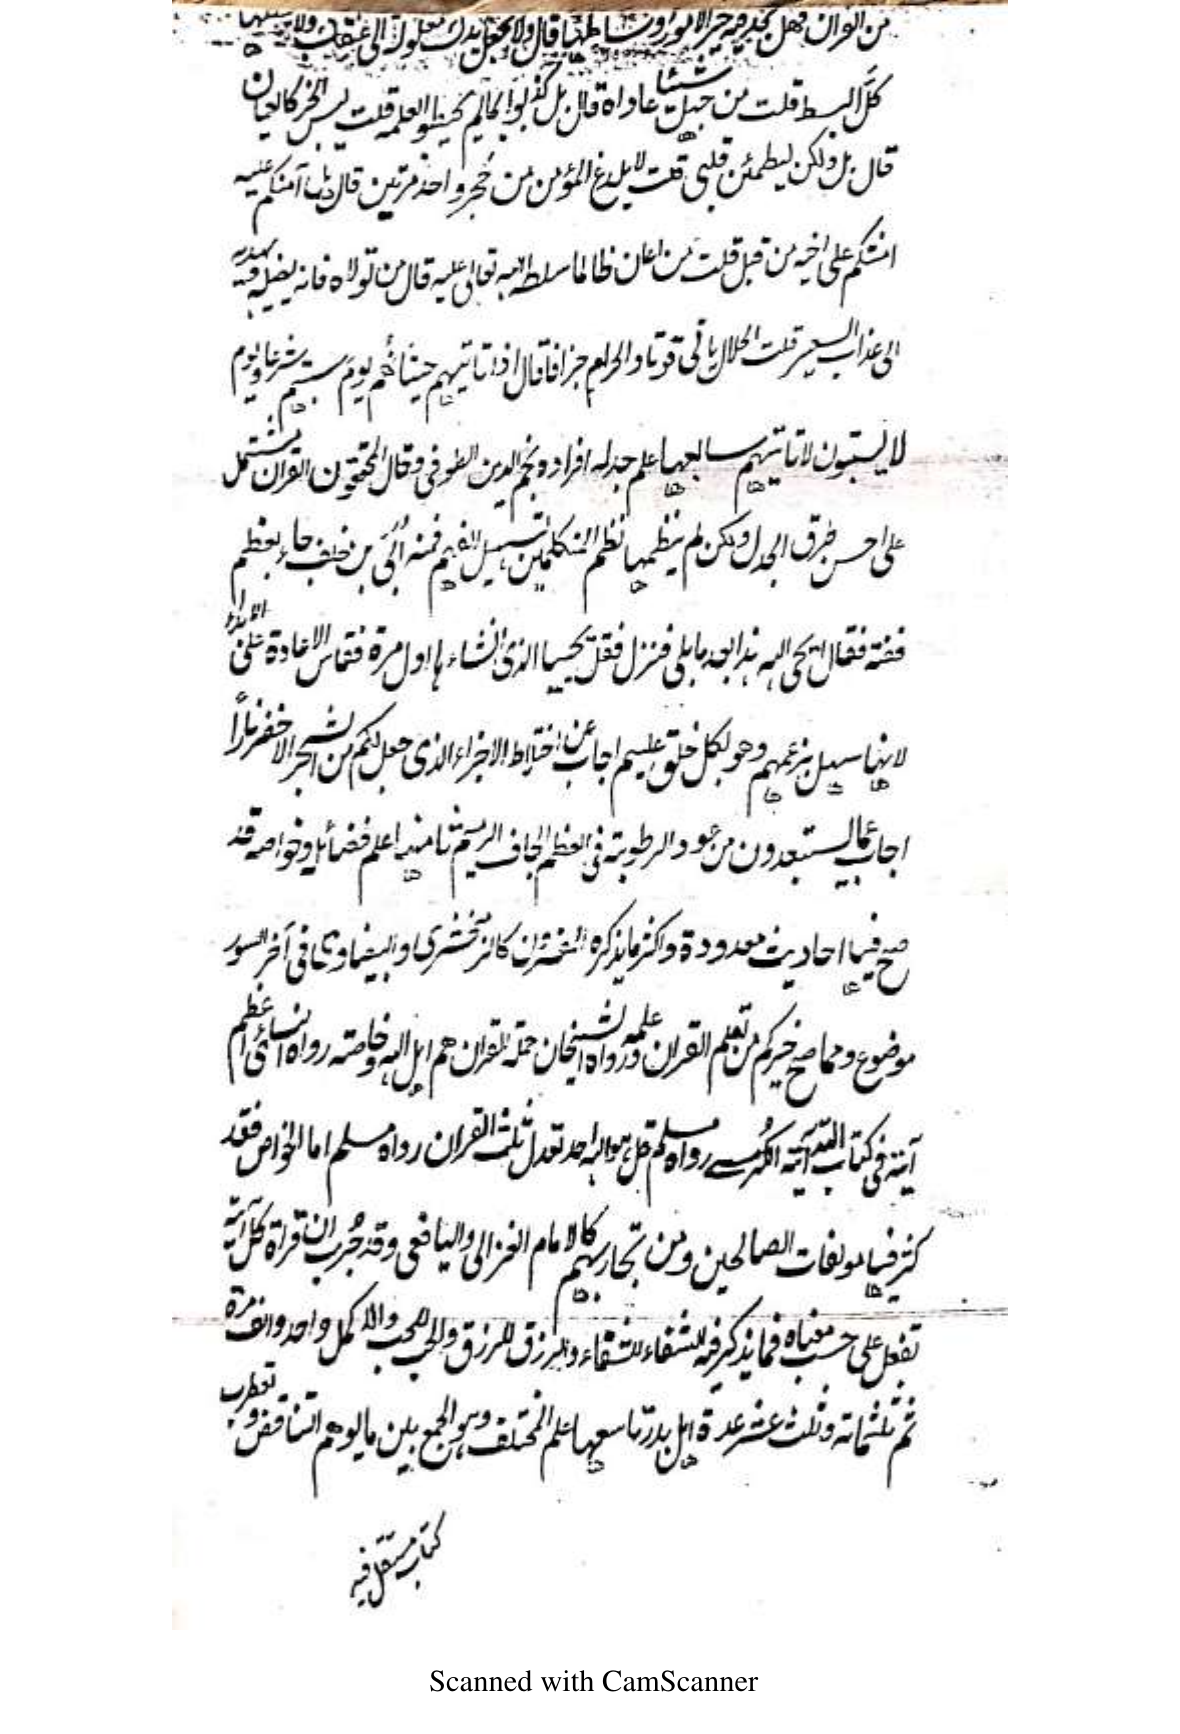 من القران فهل تجد فيه خير الامور اوساطها قال ولا تجعل يدك مغلولة الى عنقك ولا تبسطها
كل البسط قلت من جهل شيئا عاداه قال بل كذبوا بما لم يحيطوا بعلمه قلت ليس الخبر كالعيان
قال بلى ولكن ليطمئن قلبي قلت لا يلدغ المؤمن من حجر واحد مرتين قال هل آمنكم عليه
امنتكم على اخيه من قبل قلت من اعان ظالما سلطه الله تعالى عليه قال من تولاه فانه يضله ويهديه
الى عذاب السعير قلت الحلال ياتي قوتا والحرام جزافا قال اذ تاتيهم حيتانهم يوم سبتهم شرعا ويوم
لا يسبتون لا تاتيهم سابعها علم جدله افراده نجم الدين الطوفي وقال المحققون القران يشتمل
على احسن طرق الجدل ولكن لم ينظمها نظم المتكلمين لتسهيل الفهم فمنه أبي بن خلف جاء بعظم
ففته فقال اتحيي الله هذا بعد ما بلى فنزل فقل يحييها الذي انشاءها اول مرة فقاس الاعادة على الابداء
لانها سهل بزعمهم وهو بكل خلق عليم اجاب عن اختلاط الاجزاء الذي جعل لكم من الشجر الاخضر نارا
اجاب عما يستبعدون من عود الرطوبة في العظم الجاف الرميم ثامنها علم فضائله وخواصه قد
صح فيها احاديث معدودة واكثر ما يذكره المفسرون كالزمخشري او البيضاوي في آخر السور
موضوع ومما صح خيركم من تعلم القران وعلمه رواه الشيخان حملة القران هم اهل الله وخاصته رواه النسائي اعظم
آية في كتاب الله آية الكرسي رواه مسلم قل هو الله احد تعدل ثلث القران رواه مسلم اما الخواص فقد
كثر فيها مولفات الصالحين ومن تجاربهم كالامام الغزالي واليافعي وقد جرب ان قراة كل آية
تفعل على حسب معناه فما يذكر فيه الشفاء للشفاء والرزق للرزق والحب للحب والاكمل واحد والف مرة
ثم ثلثمائة وثلث عشر عدة اهل بدر تاسعها علم المختلف وهو الجمع بين ما يوهم التناقض ولقطرب
كتاب مستقل فيه
Scanned with CamScanner